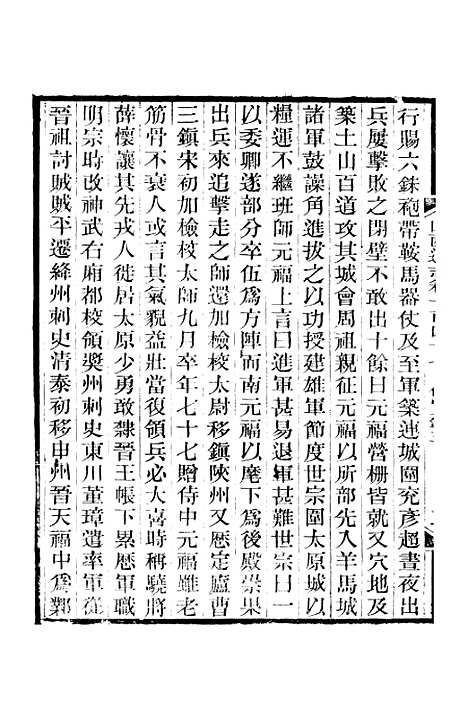 行賜六銖袍帶鞍馬器仗及至軍築連城圍兗彥超晝夜出
兵屢擊敗之閉壁不敢出十餘日元福營柵皆就又穴地及
築土山百道攻其城會周祖親征元福以所部先入羊馬城
諸軍鼓譟角進拔之以功授建雄軍節度世宗圍太原城以
糧運不繼班師元福上言曰進軍甚易退軍甚難世宗曰一
以委卿遂部分卒伍為方陣而南元福以麾下為後殿崇果
出兵來追擊走之師還加檢校太尉移鎮陝州又歷定廬曹
三鎮宋初加檢校太師九月卒年七十七贈侍中元福雖老
筋骨不衰人或言其氣貌益壯當復領兵必大喜時稱驍將
薛懷讓其先戎人徙居太原少勇敢隸晉王帳下累歷軍職
明宗時改神武右廂都校領獎州刺史東川董璋遣率軍從
晉祖討賊賊平遷絳州刺史清泰初移申州晉天福中為鄴